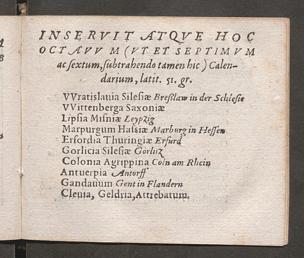 INSERVIT ATQVE HOC
OCTAVVM (VT ET SEPTIMVM
ac sextum, subtrahendo tamen hic) Calen-
darium, latit. 51. gr.
VVratislauia Silesiæ Breslaw in der Schlesie
VVittenberga Saxoniæ
Lipsia Misniæ Leypzig
Marpurgum Hassiæ Marburg in Hessen
Erfordia Thuringiæ Erfurd
Gorlicia Silesiæ Gorlitz
Colonia Agrippina Coln am Rhein
Antuerpia Antorff
Gandauum Gent in Flandern
Cleuia, Geldria, Attrebatum.